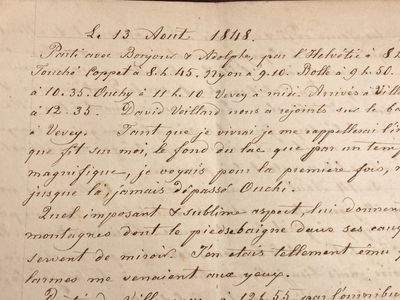 Le 13 Août 1848.
Parti avec Bonjour & Adolphe, par l'Helvétie à 8 h
Touché Coppet à 8 h. 45. Nyon à 9.10. Rolle à 9 h. 50.
à 10.35. Ouchy à 11 h. 10 Vevey à midi. Arrivés à Vill
à 12.35. David Voillard nous a rejoints sur le ba
à Vevey. Tant que je vivrai je me rappellerai l'
que fit sur moi, le fond du lac que par un tem
magnifique, je voyais pour la première fois, n
jusque là jamais dépassé Ouchi.
Quel imposant & sublime aspect, lui donnen
montagnes dont le pied se baigne dans ses eaux
servent de miroir. J'en étais tellement ému
larmes me venaient aux yeux.
à 12 h 55 par l'omnibu